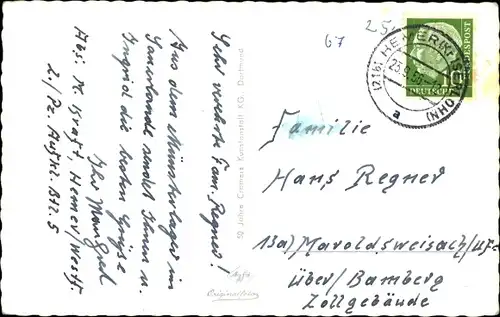 Sehr verehrte Fam. Regner!
Aus dem Münsterlager im
Sauerlande sendet Ihnen u.
Ingrid die besten Grüße
Ihr Manfred
Abs. M. Hemer/Westf.
2./Pz. Aufkl. Btl. 5
50 Jahre Cramers Kunstanstalt KG. Dortmund
Originalfoto
25
67
(21b) HEMER (KR ISERLOHN)
a
DEUTSCHE BUNDESPOST
10
Familie
Hans Regner
13a) Maroldsweisach/Ufr.
über/Bamberg
Zollgebäude